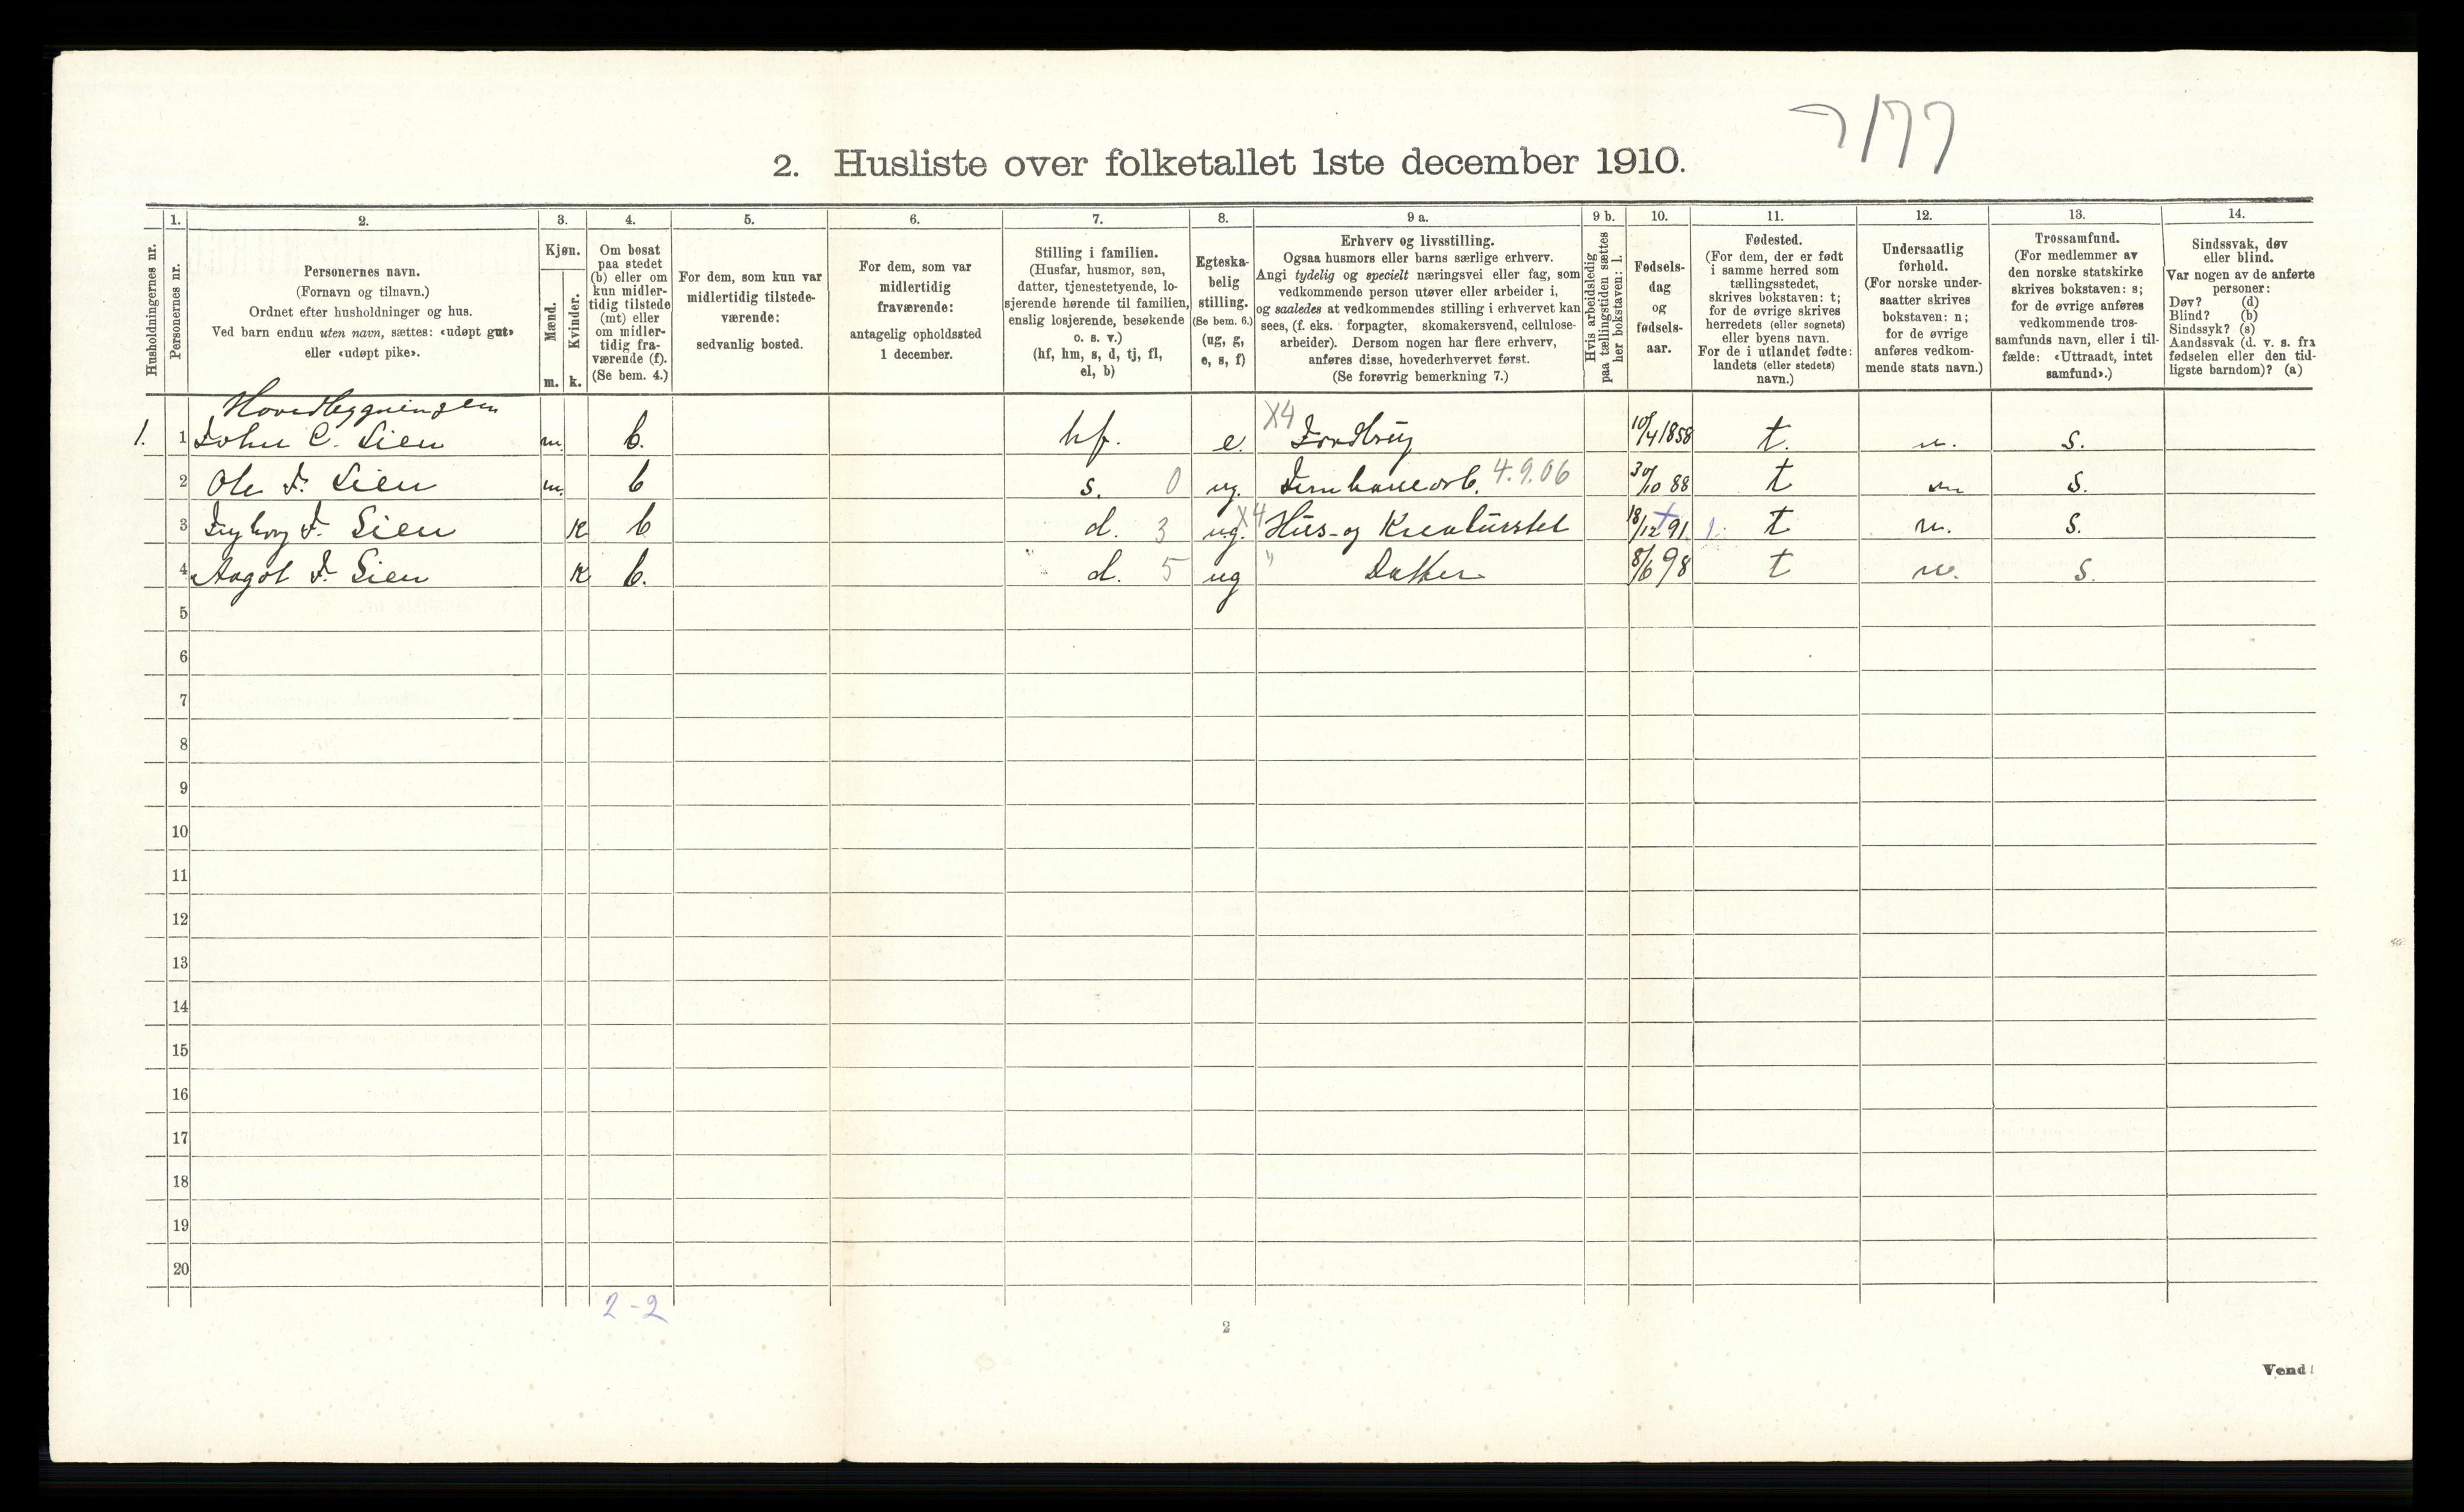 7/77
2. Husliste over folketallet 1ste december 1910.
Husholdningernes nr.
1.
Personernes nr.
2.
Personernes navn.
(Fornavn og tilnavn.)
Ordnet efter husholdninger og hus.
Ved barn endnu uten navn, sættes: «udøpt gut»
eller «udøpt pike».
3.
Kjøn.
Mænd.
Kvinder.
m. k.
4.
Om bosat
paa stedet
(b) eller om
kun midler-
tidig tilstede
(mt) eller
om midler-
tidig fra-
værende (f).
(Se bem. 4.)
5.
For dem, som kun var
midlertidig tilstede-
værende:
sedvanlig bosted.
6.
For dem, som var
midlertidig
fraværende:
antagelig opholdssted
1 december.
7.
Stilling i familien.
(Husfar, husmor, søn,
datter, tjenestetyende, lo-
sjerende hørende til familien,
enslig losjerende, besøkende
o. s. v.)
(hf, hm, s, d, tj, fl,
el, b)
8.
Egteska-
belig
stilling.
(Se bem. 6.)
(ug, g,
e, s, f)
9 a.
Erhverv og livsstilling.
Ogsaa husmors eller barns særlige erhverv.
Angi tydelig og specielt næringsvei eller fag, som
vedkommende person utøver eller arbeider i,
og saaledes at vedkommendes stilling i erhvervet kan
sees, (f. eks. forpagter, skomakersvend, cellulose-
arbeider). Dersom nogen har flere erhverv,
anføres disse, hovederhvervet først.
(Se forøvrig bemerkning 7.)
9 b.
Hvis arbeidsledig
paa tællingstiden sættes
her bokstaven: l.
10.
Fødsels-
dag
og
fødsels-
aar.
11.
Fødested.
(For dem, der er født
i samme herred som
tællingsstedet,
skrives bokstaven: t;
for de øvrige skrives
herredets (eller sognets)
eller byens navn.
For de i utlandet fødte:
landets (eller stedets)
navn.)
12.
Undersaatlig
forhold.
(For norske under-
saatter skrives
bokstaven: n;
for de øvrige
anføres vedkom-
mende stats navn.)
13.
Trossamfund.
(For medlemmer av
den norske statskirke
skrives bokstaven: s;
for de øvrige anføres
vedkommende tros-
samfunds navn, eller i til-
fælde: «Uttraadt, intet
samfund».)
14.
Sindssvak, døv
eller blind.
Var nogen av de anførte
personer:
Døv? (d)
Blind? (b)
Sindssyk? (s)
Aandssvak (d. v. s. fra
fødselen eller den tid-
ligste barndom)? (a)
Hovedbygningen
1. 1 John C. Lien m. b. hf. e. X4 Jordbrug 10/4 1858 t. n. s.
2 Ole J. Lien m. b s. 0 ug. 4.9.06 30/10 88 t n s.
3 Ingborg J. Lien K b d. 3 ug. X4 Hus- og Kreaturstel 18/12 91 1. t n. s.
4 Aagot J. Lien K b. d. 5 ug " Datter 8/6 98 t n. s.
5
6
7
8
9
10
11
12
13
14
15
16
17
18
19
20
2 - 2
2
Vend!